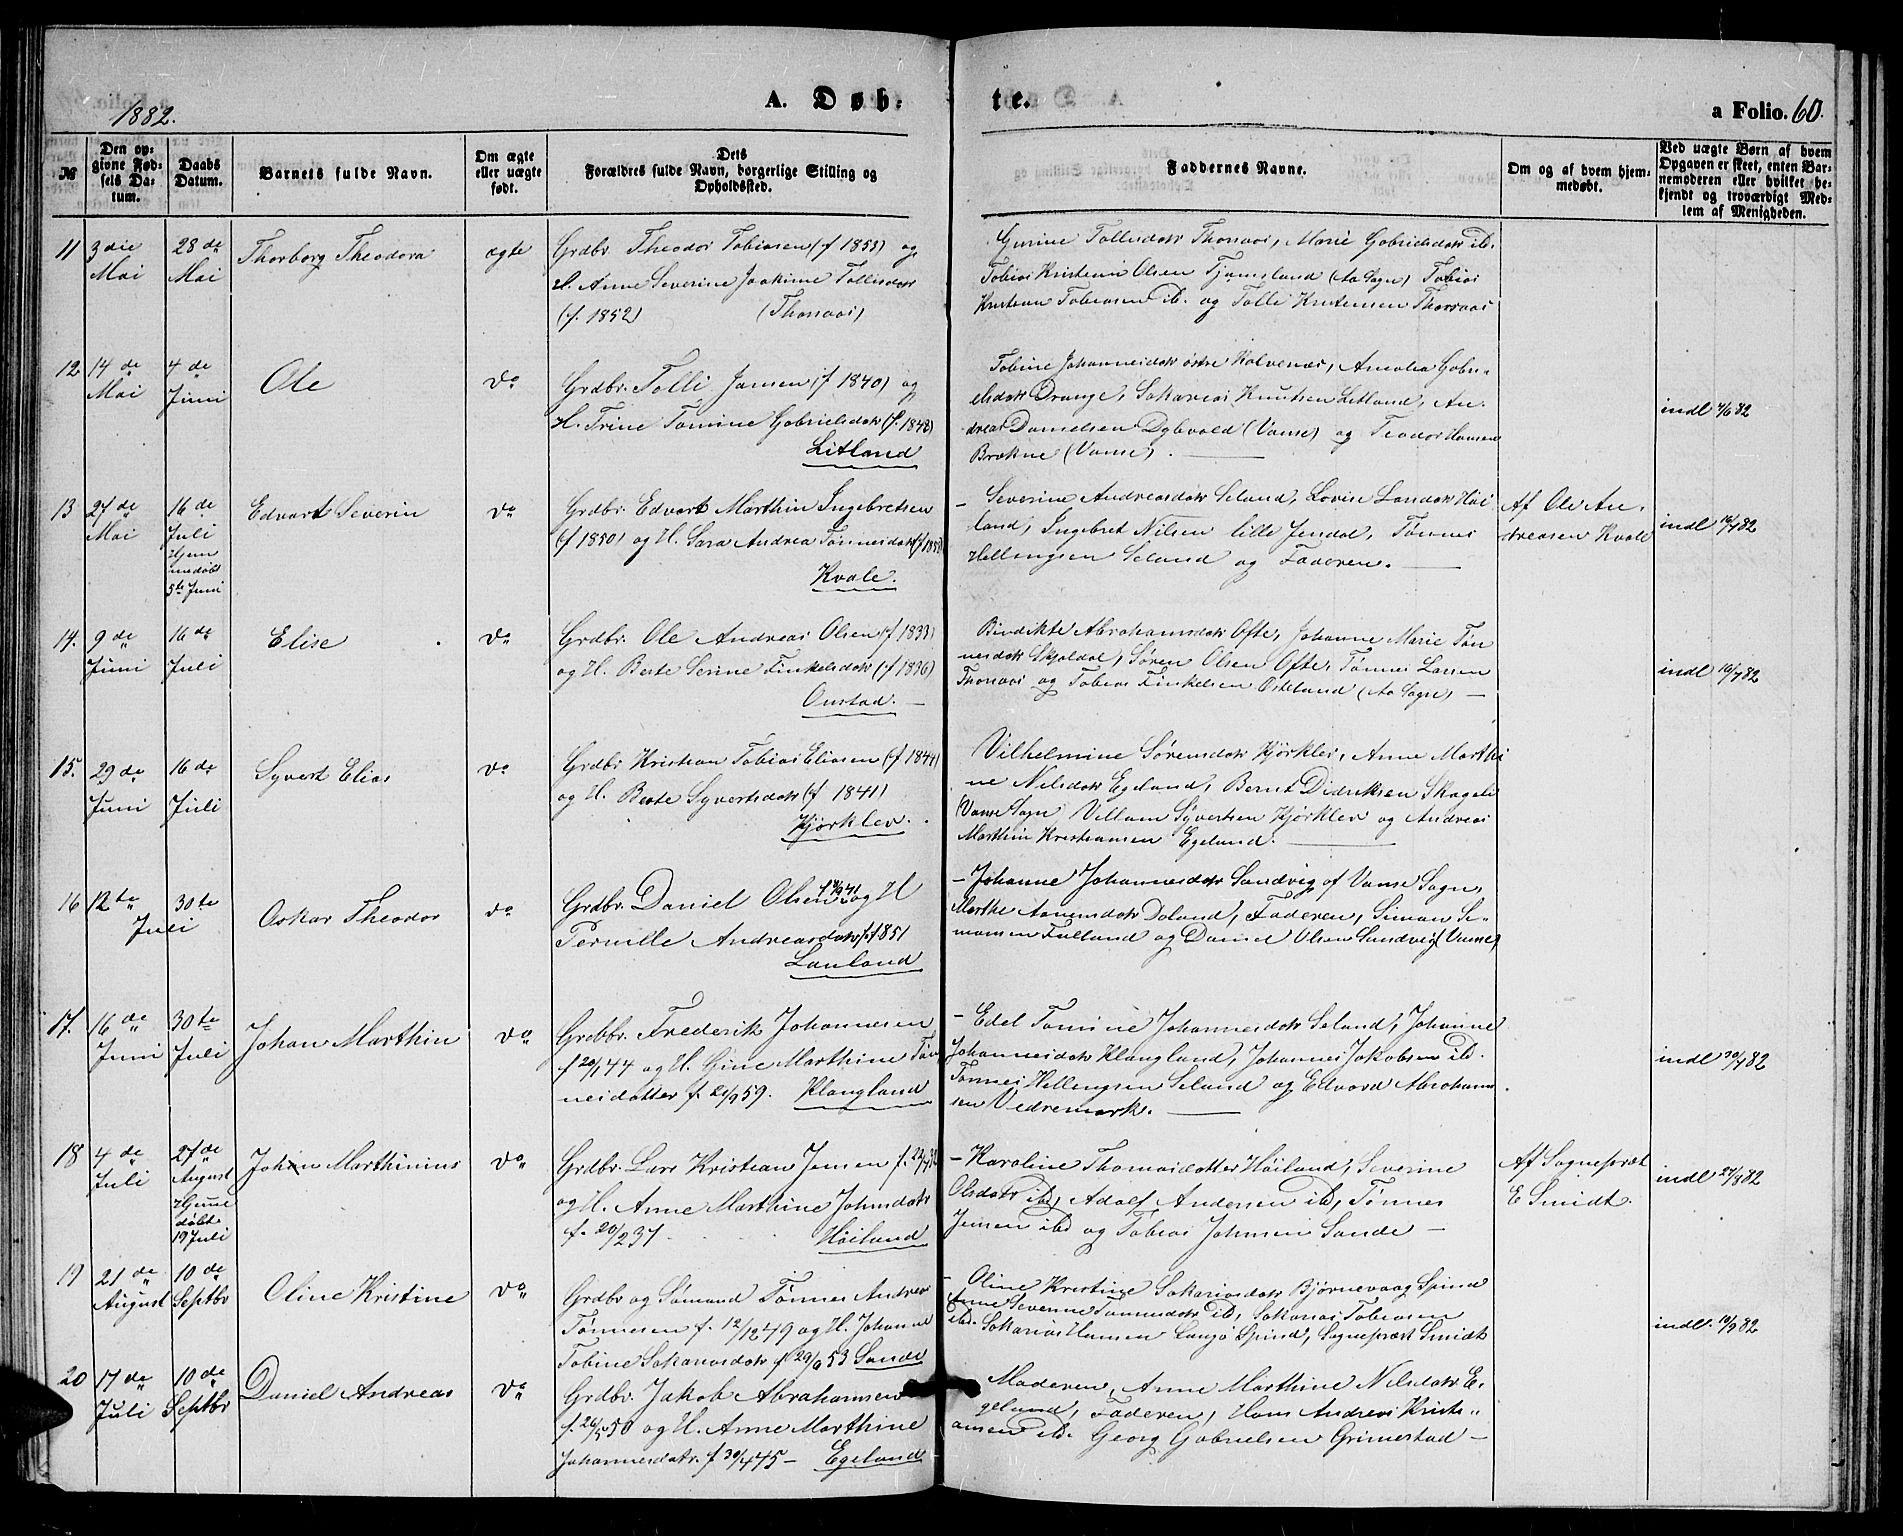 1882.
A. Døb-
te.
a Folio. 60.
№
Den op-
givne Fød-
sels Da-
tum.
Daabs
Datum.
Barnets fulde Navn.
Om ægte
eller uægte
født.
Dets
Forældres fulde Navn, borgerlige Stilling og
Opholdssted.
Faddernes Navne.
Om og af hvem hjem-
medøbt.
Ved uægte Børn af hvem
Opgaven er skeet, enten Bar-
nemoderen eller hvilket be-
kjendt og troværdigt Med-
lem af Menigheden.
11
3die
Mai
28de
Mai
Thorborg Theodora
ægte
Grdbr. Theodor Tobiasen (f 1853) og
H. Anne Severine Joakime Tollisdatr
(f. 1852) (Thorsaas)
Gurine Tollisdatr Thorsaas, Marie Gabrielsdatr ib.
Tobias Kristian Olsen Tjømsland (Aa Sogn) Tobias
Kristian Tobiasen ib. og Tolli Kristensen Thorsaas
12
14de
Mai
4de
Juni
Ole
do
Grdbr. Tolli Jansen (f 1840) og
H. Trine Tomine Gabrielsdatr (f. 1842)
Litland
Tobine Johannesdatr østre Kalvenæs, Amalia Gabri-
elsdatr Drange, Sakarias Knutsen Litland, An-
dreas Danielsen Dybvold (Vanse) og Teodor Hansen
Brækne (Vanse).
indl 4/6 82
13
27de
Mai
16de
Juli
Hjem
medøbt
5te Juni
Edvart Severin
do
Grdbr. Edvart Marthin Ingebretsen
(f 1850) og H. Sara Andrea Tønnesdatr (f 1852)
Kvale.
Severine Andreasdatr Seland, Lovise Larsdatr Høi
land, Ingebret Nilsen lille Jendal, Tønnes
Hellingsen Seland og Faderen.
Af Ole An-
dreasen Kvale
indl 16/7 82
14.
9de
Juni
16de
Juli
Elise
do
Grdbr. Ole Andreas Olsen (f 1833)
og H. Berte Serine Finkelsdatr (f 1836)
Onstad.
Bindikte Abrahamsdatr Ofte, Johanne Marie Tøn
nesdatr Skjoldal, Søren Olsen Ofte, Tønnes Larsen
Thorsaas og Tobias Finkelsen Osteland (Aa Sogn)
indl 16/7 82
15.
29de
Juni
16de
Juli
Syvert Elias
do
Grdbr Kristian Tobias Eliasen (f 1844)
og H. Berte Syvertsdatr (f 1841)
Kjørklev.
Vilhelmine Sørensdatr Kjørklev, Anne Marthi
ne Nilsdatr Egeland, Bernt Didriksen Skageli
(Vanse Sogn Villam Syvertsen Kjørklev og Andreas
Marthin Kristiansen Egeland.
16
12te
Juli
30te
Oskar Theodor
do
Grdbr. Daniel Olsen og H
Pernille Andreasdatr f. 1851
Lauland
Johanne Johannesdatr Sandvig af Vanse Sogn,
Marthe Aanensdatr Doland, Faderen, Simon Si-
monsen Fulland og Daniel Olsen Sandvig (Vanse)
17.
16de
Juni
30te
Juli
Johan Marthin
do
Grdbr. Frederik Johannesen
f 20/1 44 og H. Gine Marthine Tøn
nesdatter f. 21/9 59. Klungland
Edel Tomine Johannesdatr Seland, Johanne
Johannesdatr Klungland, Johannes Jakobsen ib.
Tønnes Hellingsen Seland og Edvard Abraham
sen Vedremark.
indl 30/7 82
18
4de
Juli
27de
August
Hjemme
døbt
19 Juli
Johan Marthinius
do
Grdbr. Lars Kristian Jensen f.
og H. Anne Marthine Johnsdatr
f. 20/2 37
Høiland
Karoline Thomasdatter Høiland, Severine
Olsdatr ib, Adolf Andersen ib, Tønnes
Jensen ibd og Tobias Johnsen Sande
Af Sognepræst
E Smidt.
indl 27/8 82
19
21de
August
10de
Septbr
Oline Kristine
do
Grdbr og Sømand Tønnes Andreas
Tønnesen f. 12/12 49 og H. Johanne
Tobine Sakariasdatr f 29/9 53 Sande
Oline Kristine Sakariasdatr Bjørnevaag Spind
Anne Severine Tønnesdatr ib, Sakarias Tobiasen
ibd. Sakarias Hansen Langø Spind, Sognepræst Smidt
indl. 10/9 82
20
17de
Juli
10de
Septbr
Daniel Andreas
do
Grdbr. Jakob Abrahamsen
f. 26/5 50 og H. Anne Marthine
Johannesdatr. f 30/4 45 Egeland
Moderen, Anne Marthine Nilsdatr E-
geland, Faderen, Hans Andreas Kristi-
ansen ib. Georg Gabrielsen Grimestad